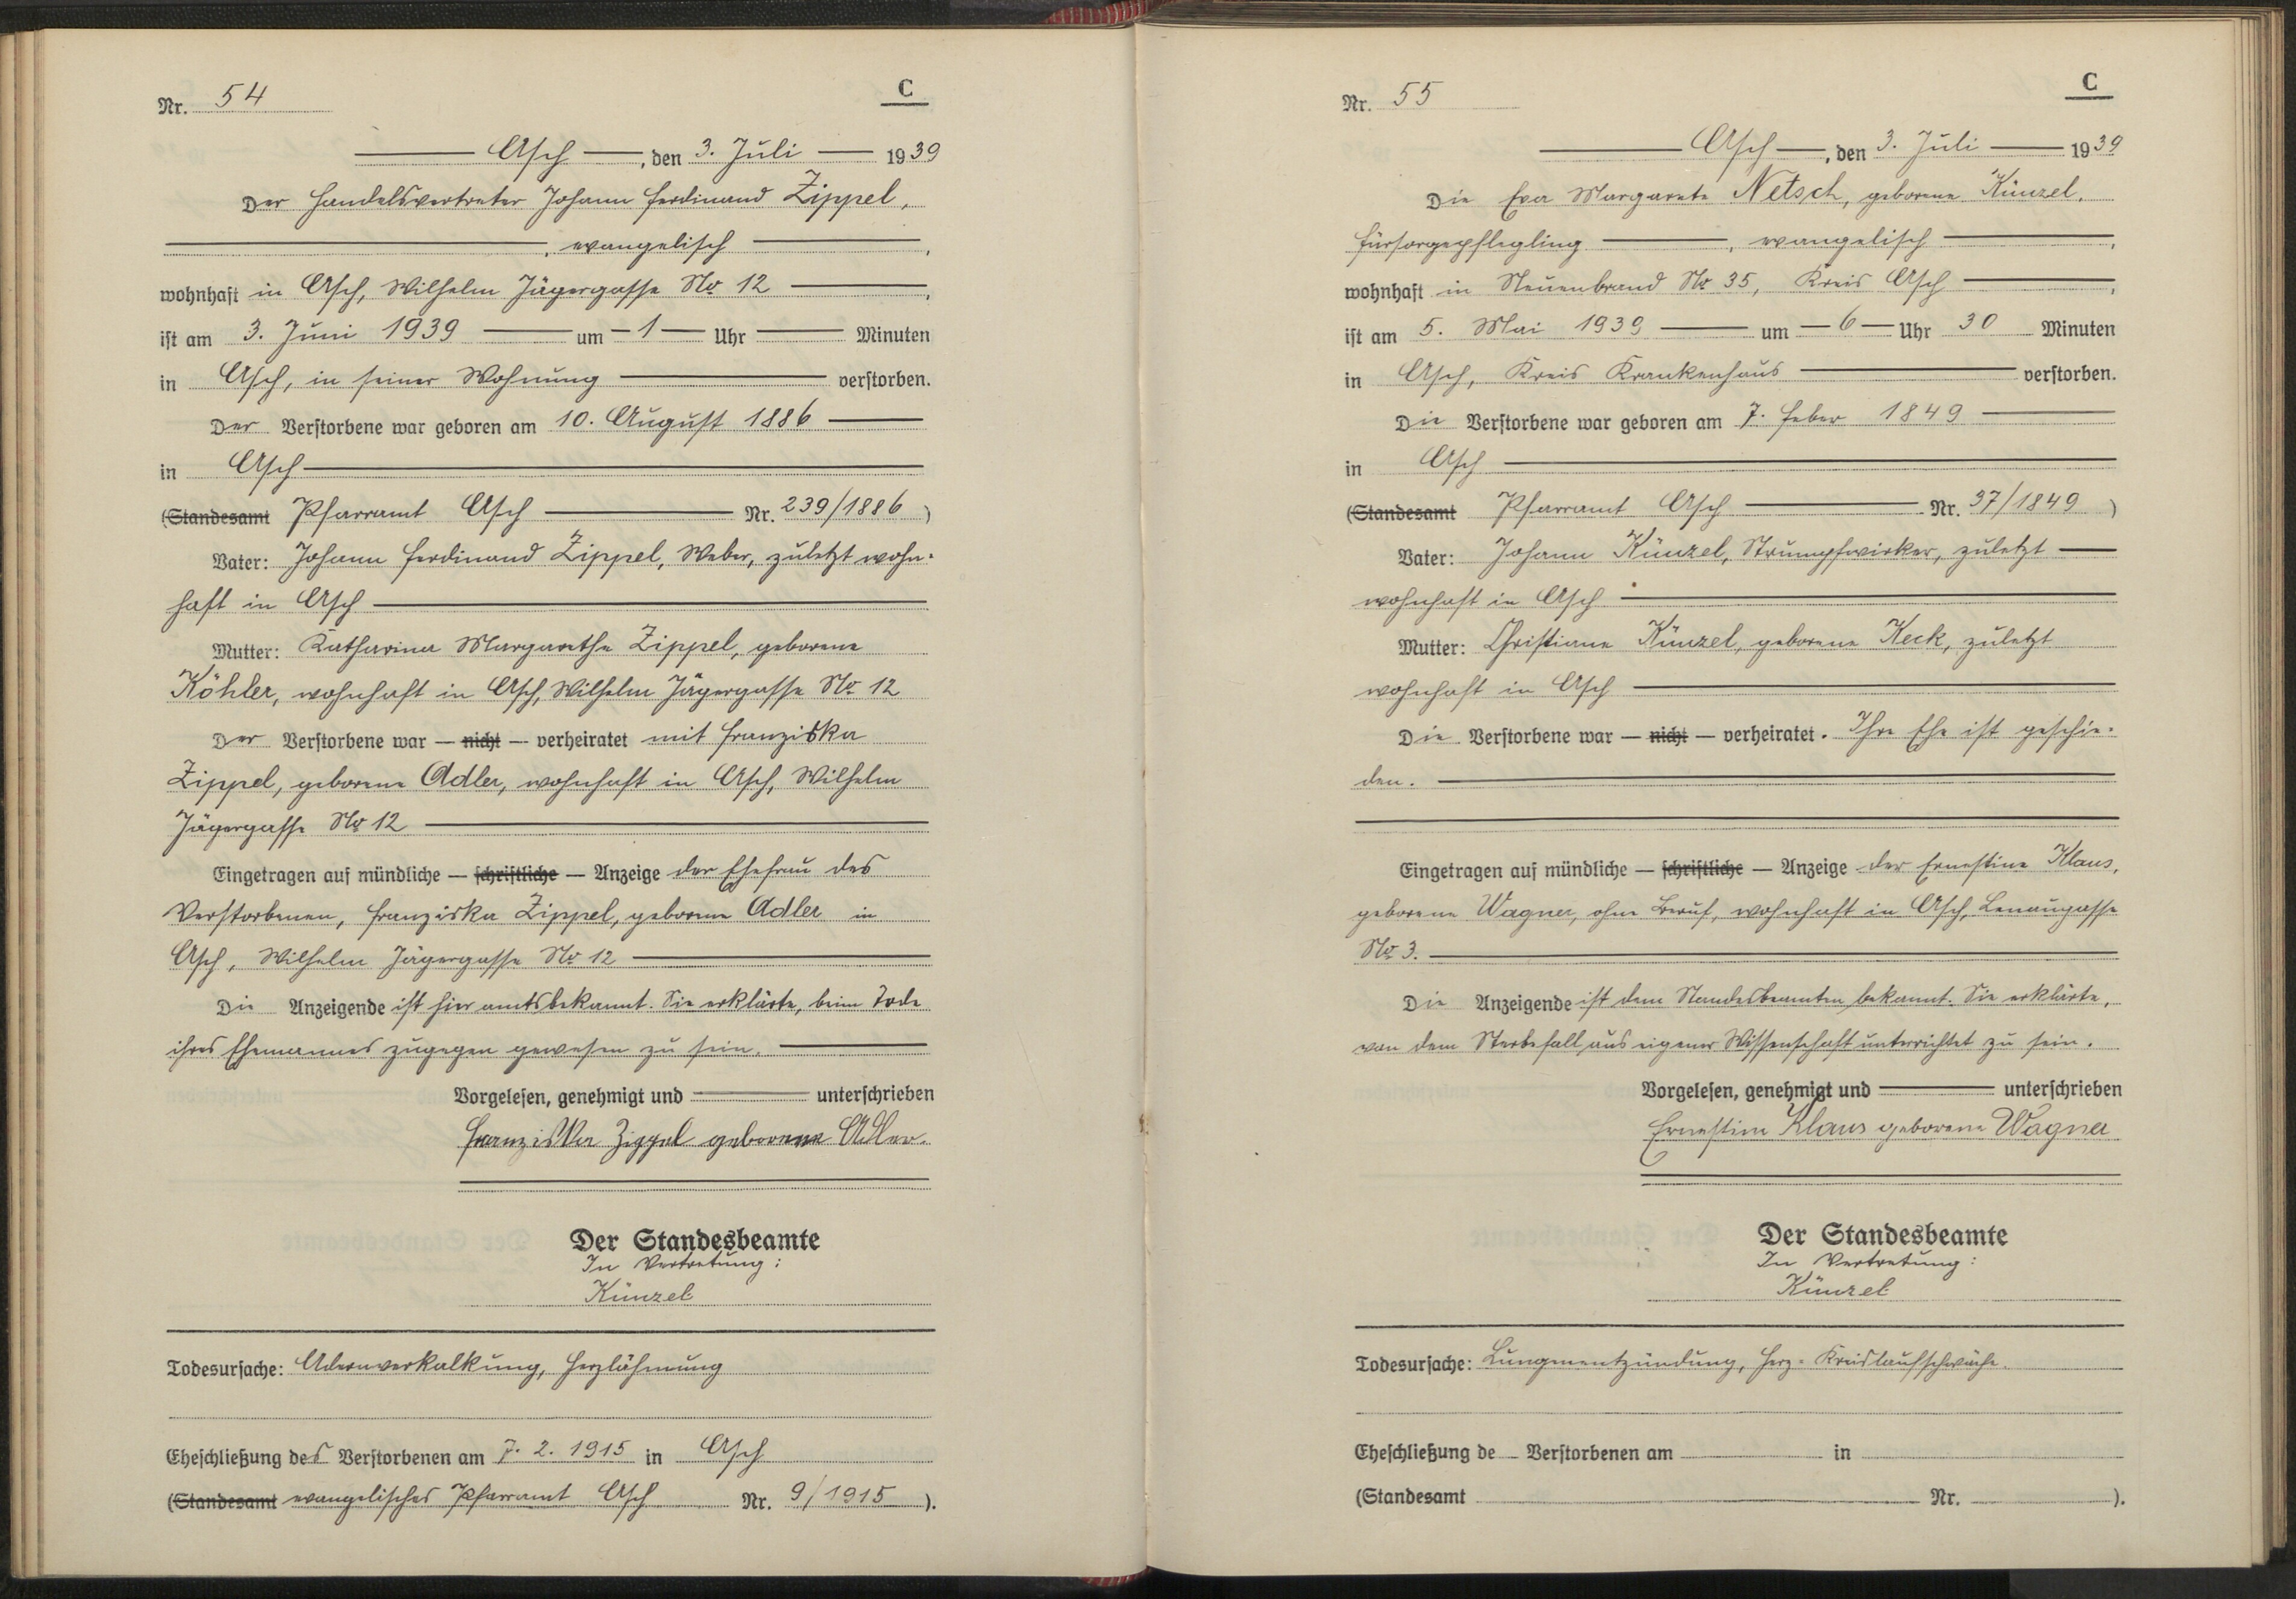 Nr. 54
C
Asch, den 3. Juli 1939
Der Handelsvertreter Johann Ferdinand Zippel,
, evangelisch ,
wohnhaft in Asch, Wilhelm Jägergasse No 12 ,
ist am 3. Juni 1939 um — 1 — Uhr Minuten
in Asch, in seiner Wohnung verstorben.
Der Verstorbene war geboren am 10. August 1886
in Asch
(Standesamt Pfarramt Asch Nr. 239/1886 )
Vater: Johann Ferdinand Zippel, Weber, zuletzt wohn-
haft in Asch
Mutter: Katharina Margarethe Zippel, geborene
Köhler, wohnhaft in Asch, Wilhelm Jägergasse No 12
Der Verstorbene war — nicht — verheiratet mit Franziska
Zippel, geborene Adler, wohnhaft in Asch, Wilhelm
Jägergasse No 12
Eingetragen auf mündliche — schriftliche — Anzeige der Ehefrau des
Verstorbenen, Franziska Zippel, geborene Adler in
Asch, Wilhelm Jägergasse No 12
Die Anzeigende ist hier amtsbekannt. Sie erklärte, beim Tode
ihres Ehemannes zugegen gewesen zu sein.
Vorgelesen, genehmigt und unterschrieben
Franziska Zippel geborene Adler.
Der Standesbeamte
In Vertretung:
Künzel
Todesursache: Adernverkalkung, Herzlähmung
Eheschließung des Verstorbenen am 7. 2. 1915 in Asch
(Standesamt evangelisches Pfarramt Asch Nr. 9/1915 ).
Nr. 55
C
Asch, den 3. Juli 1939
Die Eva Margarete Netsch, geborene Künzel,
Fürsorgepflegling , evangelisch ,
wohnhaft in Neuenbrand No 35, Kreis Asch ,
ist am 5. Mai 1939 um — 6 — Uhr 30 Minuten
in Asch, Kreis Krankenhaus verstorben.
Die Verstorbene war geboren am 7. Feber 1849
in Asch
(Standesamt Pfarramt Asch Nr. 37/1849 )
Vater: Johann Künzel, Strumpfwirker, zuletzt
wohnhaft in Asch
Mutter: Christiane Künzel, geborene Keck, zuletzt
wohnhaft in Asch
Die Verstorbene war — nicht — verheiratet. Ihre Ehe ist geschie-
den.
Eingetragen auf mündliche — schriftliche — Anzeige der Ernestine Klaus,
geborene Wagner, ohne Beruf, wohnhaft in Asch, Lenaugasse
No 3.
Die Anzeigende ist dem Standesbeamten bekannt. Sie erklärte,
von dem Sterbefall aus eigener Wissenschaft unterrichtet zu sein.
Vorgelesen, genehmigt und unterschrieben
Ernestine Klaus geborene Wagner
Der Standesbeamte
In Vertretung:
Künzel
Todesursache: Lungenentzündung, Herz-Kreislaufschwäche.
Eheschließung de Verstorbenen am in
(Standesamt Nr. ).